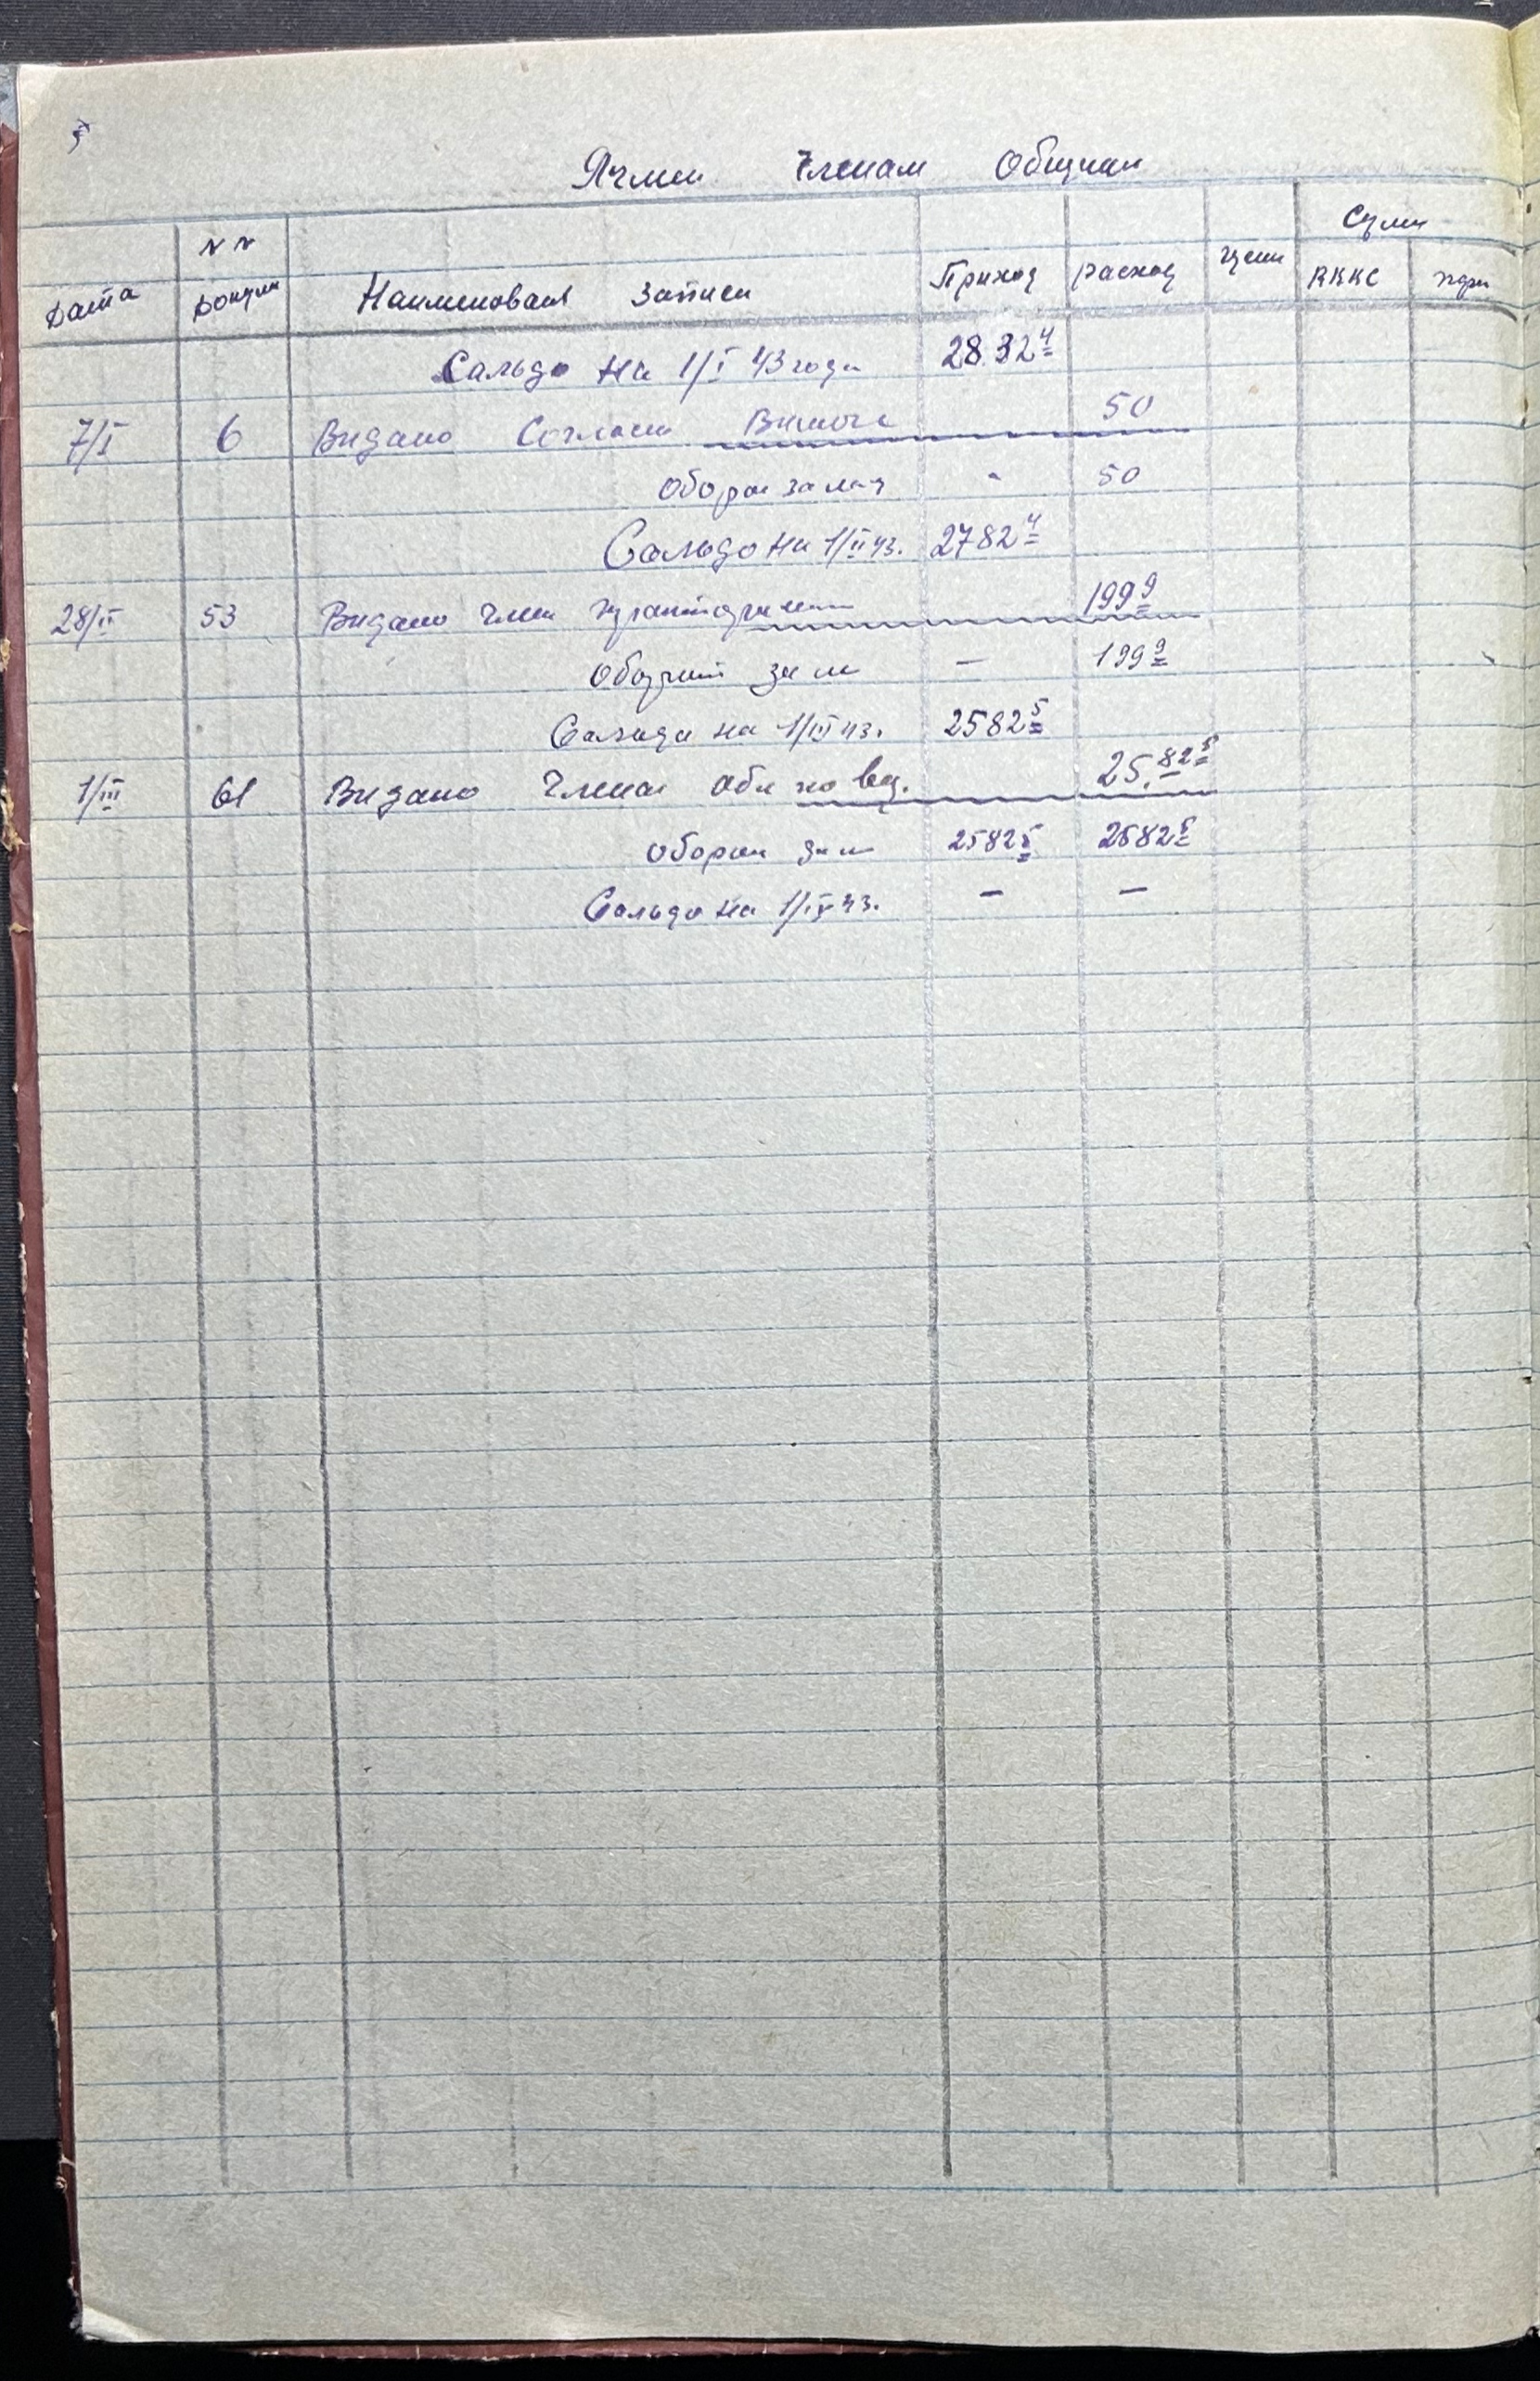 5
Ячмен Членам Общини
Дата
N N
Докумен
Наименован Записи
Приход
Расход
Цени
Сумм
RKKC
карб
Сальдо на 1/I 43 года 2832 4
7/I 6 Видано Согласн 50
Оборот за м-ц - 50
Сальдо на 1/II 43. 2782 4
28/II 53 Видано член 199 9
Оборот за м — 199 9
Сальдо на 1/III 43. 2582 5
1/III 61 Видано Членам Общ по вед. 25.82 5
Оборот за м 2582 5 2582 5
Сальдо на 1/IV 43. — —